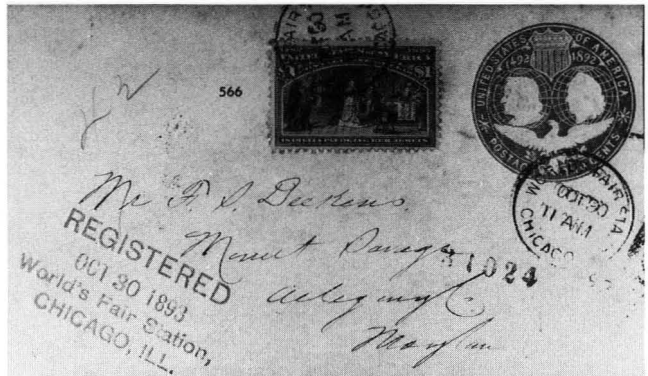 566
UNITED STATES OF AMERICA
1492 1892
$1 $1
ISABELLA PLEDGING HER JEWELS
WORLD'S FAIR STA
OCT 30
11 AM
CHICAGO
Mr F. S. Dickens
Mount Savage
31024
Allegany Co
Maryland
REGISTERED
OCT 30 1893
World's Fair Station,
CHICAGO, ILL.